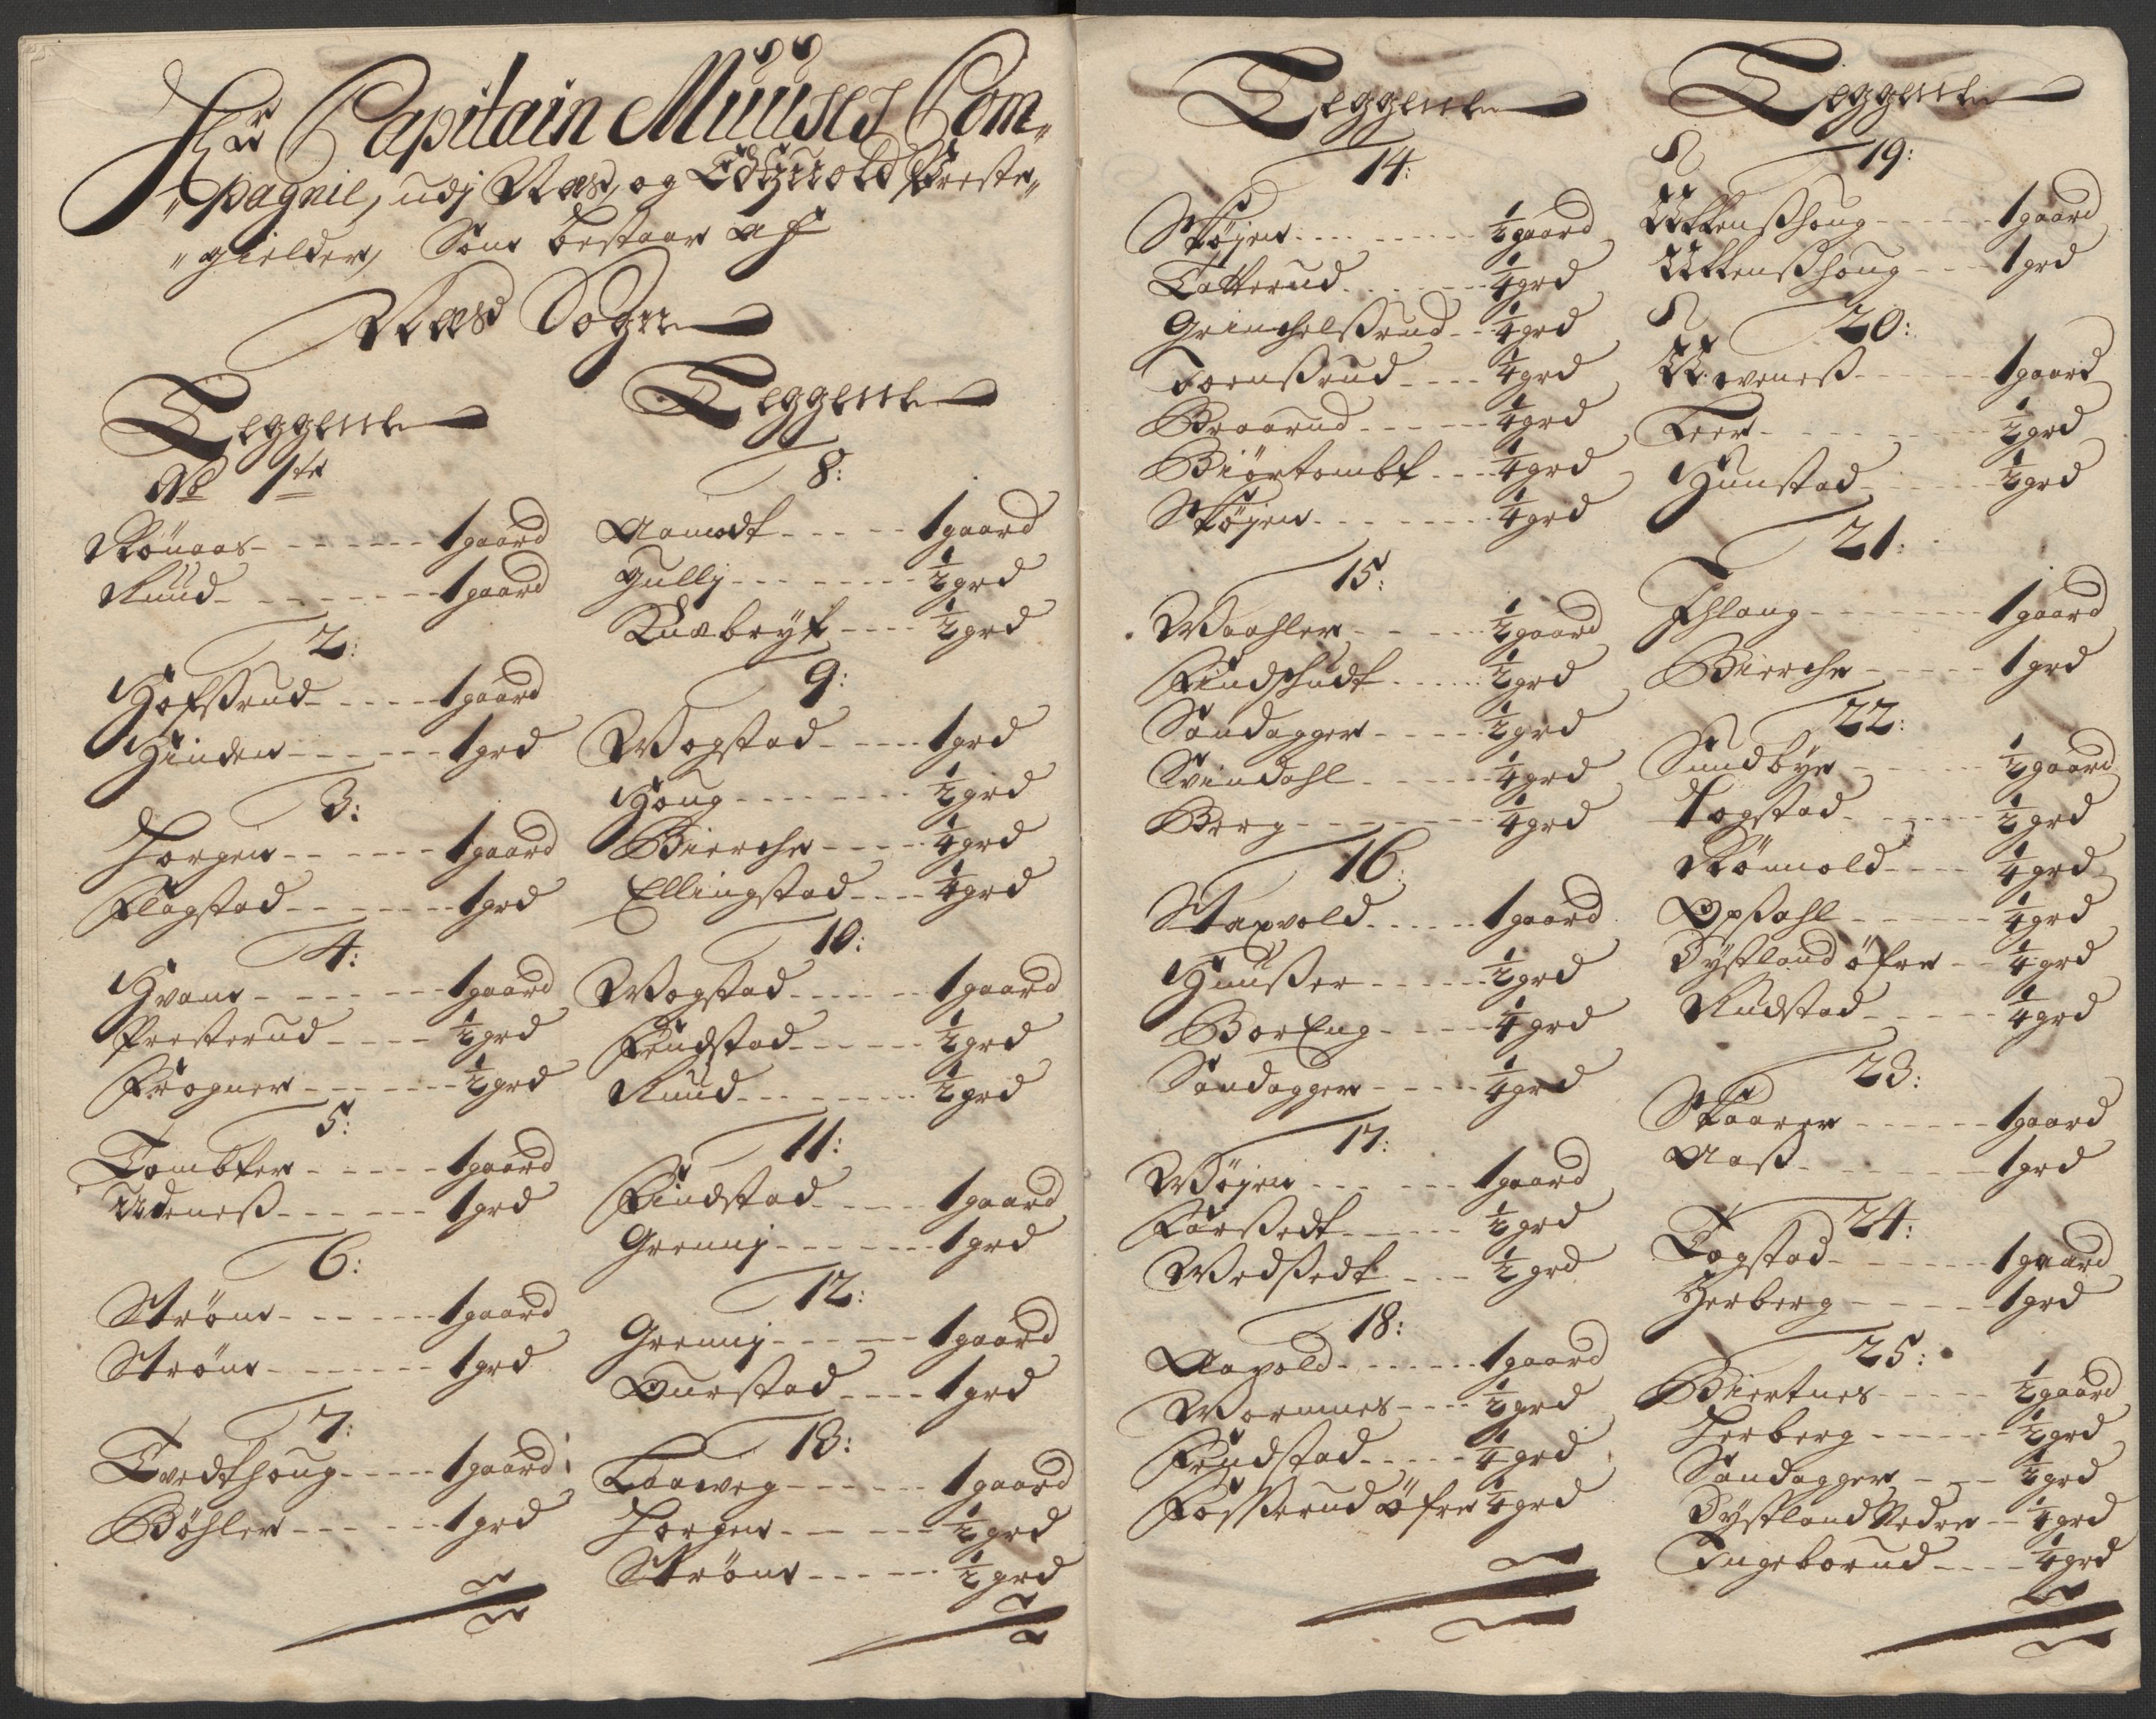 Hr Capitain Muuses Com„
„pagnie, udj Næs, og Edtzuold Preste„
„gielder, Som bestaar af
Næs Sogn
Leggene
No 1te
Rönaas 1 gaard
Ruud 1 gaard
2:
Hofsrud 1 gaard
Hinden 1 grd
3:
Horgen 1 gaard
Flagstad 1 grd
4:
Hvam 1 gaard
Presterud ½ grd
Frogner ½ grd
5:
Tombter 1 gaard
Udeneß 1 grd
6:
Strøm 1 gaard
Strøm 1 grd
7:
Tvedthoug 1 gaard
Bøhler 1 grd
Leggene
8:
Aamodt 1 gaard
Gullj ½ grd
Knæbryt ½ grd
9:
Wogstad 1 grd
Houg ½ grd
Bierche ¼ grd
Ellingstad ¼ grd
10:
Wogstad 1 gaard
Frudstad ½ grd
Ruud ½ grd
11:
Findstad 1 gaard
Grennj 1 grd
12:
Grennj 1 gaard
Ourstad 1 grd
13:
Laaweg 1 gaard
Horgen ½ grd
Strøm ½ grd
Leggene
14:
Skøyen ½ gaard
Latterud ¼ grd
Grinchelßrud ¼ grd
Toenßrud ¼ grd
Braarud ¼ grd
Biørtombt ¼ grd
Skøyen ¼ grd
15:
Waahler ½ gaard
Findshudt ½ grd
Sandagger ½ grd
Svindahl ¼ grd
Berg ¼ grd
16:
Staxvold 1 gaard
Huußer ½ grd
BorEng ¼ grd
Sandagger ¼ grd
17:
Wøyen 1 gaard
Farßedt ½ grd
Wedßedt ½ grd
18:
Aavold 1 gaard
Wormnes ½ grd
Frudstad ¼ grd
Foßerud öfre ¼ grd
Leggene
19:
Ullenßhoug 1 gaard
Ullenßhoug 1 grd
20:
Uveneß 1 gaard
Leer ½ grd
Hunstad ½ grd
21:
Ihlang 1 gaard
Bierche 1 grd
22:
Sundbye ½ gaard
Togstad ½ grd
Römold ¼ grd
Opßahl ¼ grd
Dystland öfre ¼ grd
Rudstad ¼ grd
23:
Skaarer 1 gaard
Aaß 1 grd
24:
Togstad 1 gaard
Herberg 1 grd
25:
Biertnes ½ gaard
Herberg ½ grd
Sandagger ½ grd
Dystland Nedre ¼ grd
Ingeborud ¼ grd